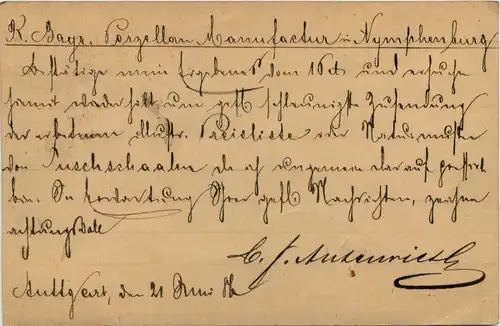 K. Bayr. Porzellan Manufactur in Nymphenburg
Bestätige mein Ergebenes vom 1 und ersuche
hiermit wiederholt um gefl schleunigste Zusendung
der erbetenen illustr. Preisliste oder Naturmuster
von da ich ungemein darauf pressirt
bin. In Erwartung Ihrer gefl Nachrichten, zeichne
achtungsvoll
C. F. Autenrieth
Stuttgart, den 21 Juni